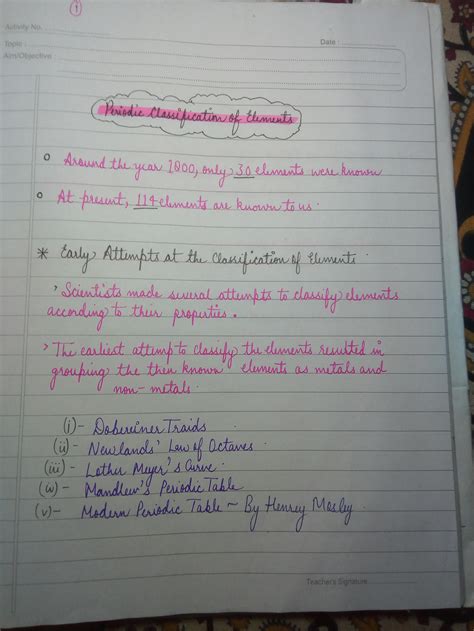 1
Activity No.
Date :
Topic :
Aim/Objective
Periodic Classification of Elements
o Around the year 1800, only 30 elements were known
o At present, 114 elements are known to us.
* Early Attempts at the Classification of Elements
> Scientists made several attempts to classify elements
according to their properties.
> The earliest attemp to classify the elements resulted in
grouping the then known elements as metals and
non-metals.
(i)- Dobereiner Traids
(ii)- Newlands' Law of Octaves.
(iii)- Lother Meyer's Curve.
(iv)- Mandleev's Periodic Table
(v)- Modern Periodic Table ~ By Henrey Mosley.
Teacher's Signature